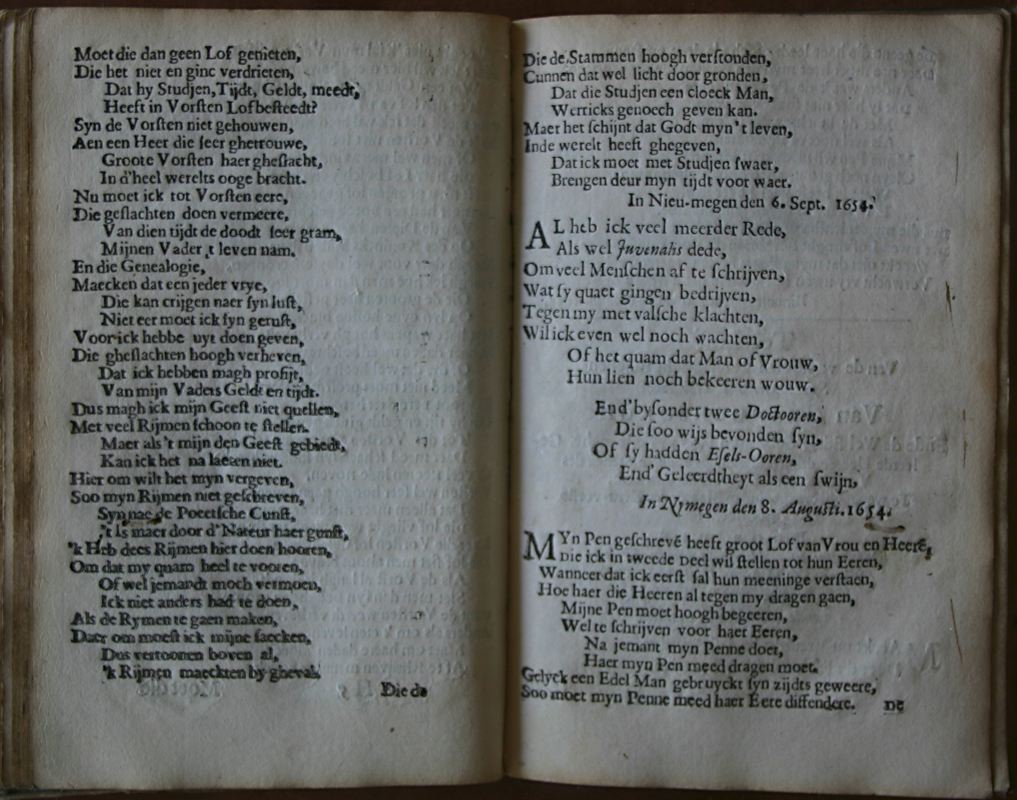 Moet die dan geen Lof genieten,
Die het niet en ginc verdrieten,
Dat hy Studjen, Tijdt, Geldt, meedt,
Heeft in Vorſten Lof beſteedt?
Syn de Vorſten niet gehouwen,
Aen een Heer die ſeer ghetrouwe,
Groote Vorſten haer gheſlacht,
In d'heel werelts ooge bracht.
Nu moet ick tot Vorſten eere,
Die geſlachten doen vermeere,
Van dien tijdt de doodt ſeer gram,
Mijnen Vader 't leven nam.
En die Genealogie,
Maecken dat een jeder vrye,
Die kan crijgen naer ſyn luſt,
Niet eer moet ick ſyn geruſt,
Voor ick hebbe uyt doen geven,
Die gheſlachten hoogh verheven,
Dat ick hebben magh profijt,
Van mijn Vaders Geldt en tijdt.
Dus magh ick mijn Geeſt niet quellen,
Met veel Rijmen ſchoon te ſtellen.
Maer als 't mijn den Geeſt gebiedt,
Kan ick het na laeten niet.
Hier om wilt het myn vergeven,
Soo myn Rijmen niet geſchreven,
Syn nae de Poeetſche Cunſt,
't Is maer door d'Nateur haer gunſt,
'k Heb dees Rijmen hier doen hooren,
Om dat my quam heel te vooren,
Of wel jemandt moch vermoen,
Ick niet anders had te doen,
Als de Rymen te gaen maken,
Daer om moeſt ick mijne ſaecken,
Dus vertoonen boven al,
'k Rijmen maeckten by gheval.
Die de
Die de Stammen hoogh verſtonden,
Cunnen dat wel licht door gronden,
Dat die Studjen een cloeck Man,
Werricks genoech geven kan.
Maer het ſchijnt dat Godt myn 't leven,
Inde werelt heeft ghegeven,
Dat ick moet met Studjen ſwaer,
Brengen deur myn tijdt voor waer.
In Nieu-megen den 6. Sept. 1654.
AL heb ick veel meerder Rede,
Als wel Juvenalis dede,
Om veel Menſchen af te ſchrijven,
Wat ſy quaet gingen bedrijven,
Tegen my met valſche klachten,
Wil ick even wel noch wachten,
Of het quam dat Man of Vrouw,
Hun lien noch bekeeren wouw.
End' byſonder twee Doctooren,
Die ſoo wijs bevonden ſyn,
Of ſy hadden Eſels-Ooren,
End' Geleerdtheyt als een ſwijn,
In Nymegen den 8. Auguſti. 1654.
MYn Pen geſchrevē heeft groot Lof van Vrou en Heerē,
Die ick in tweede Deel wil ſtellen tot hun Eeren,
Wanneer dat ick eerſt ſal hun meeninge verſtaen,
Hoe haer die Heeren al tegen my dragen gaen,
Mijne Pen moet hoogh begeeren,
Wel te ſchrijven voor haer Eeren,
Na jemant myn Penne doet,
Haer myn Pen meed dragen moet.
Gelyck een Edel Man gebruyckt ſyn zijdts geweere,
Soo moet myn Penne meed haer Eere diffendere.
De